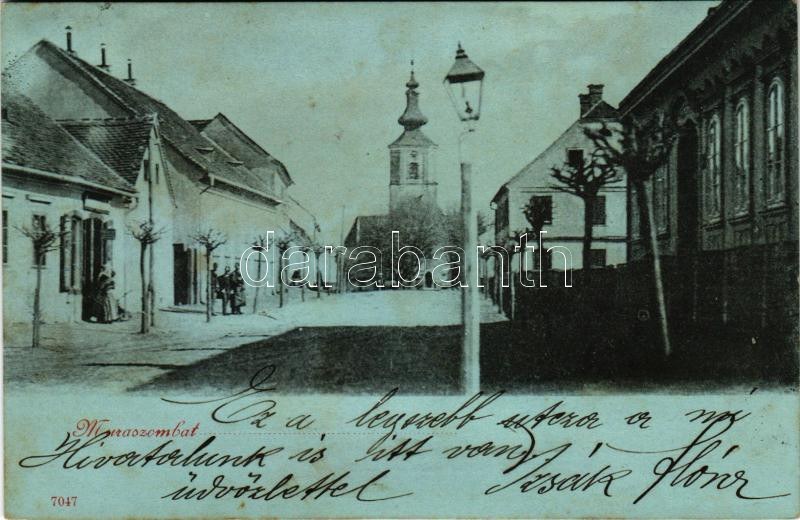 darabanth
Muraszombat
Ez a legszebb utcza a mi
Hivatalunk is itt van,
üdvözlettel Izsák Flóri
7047